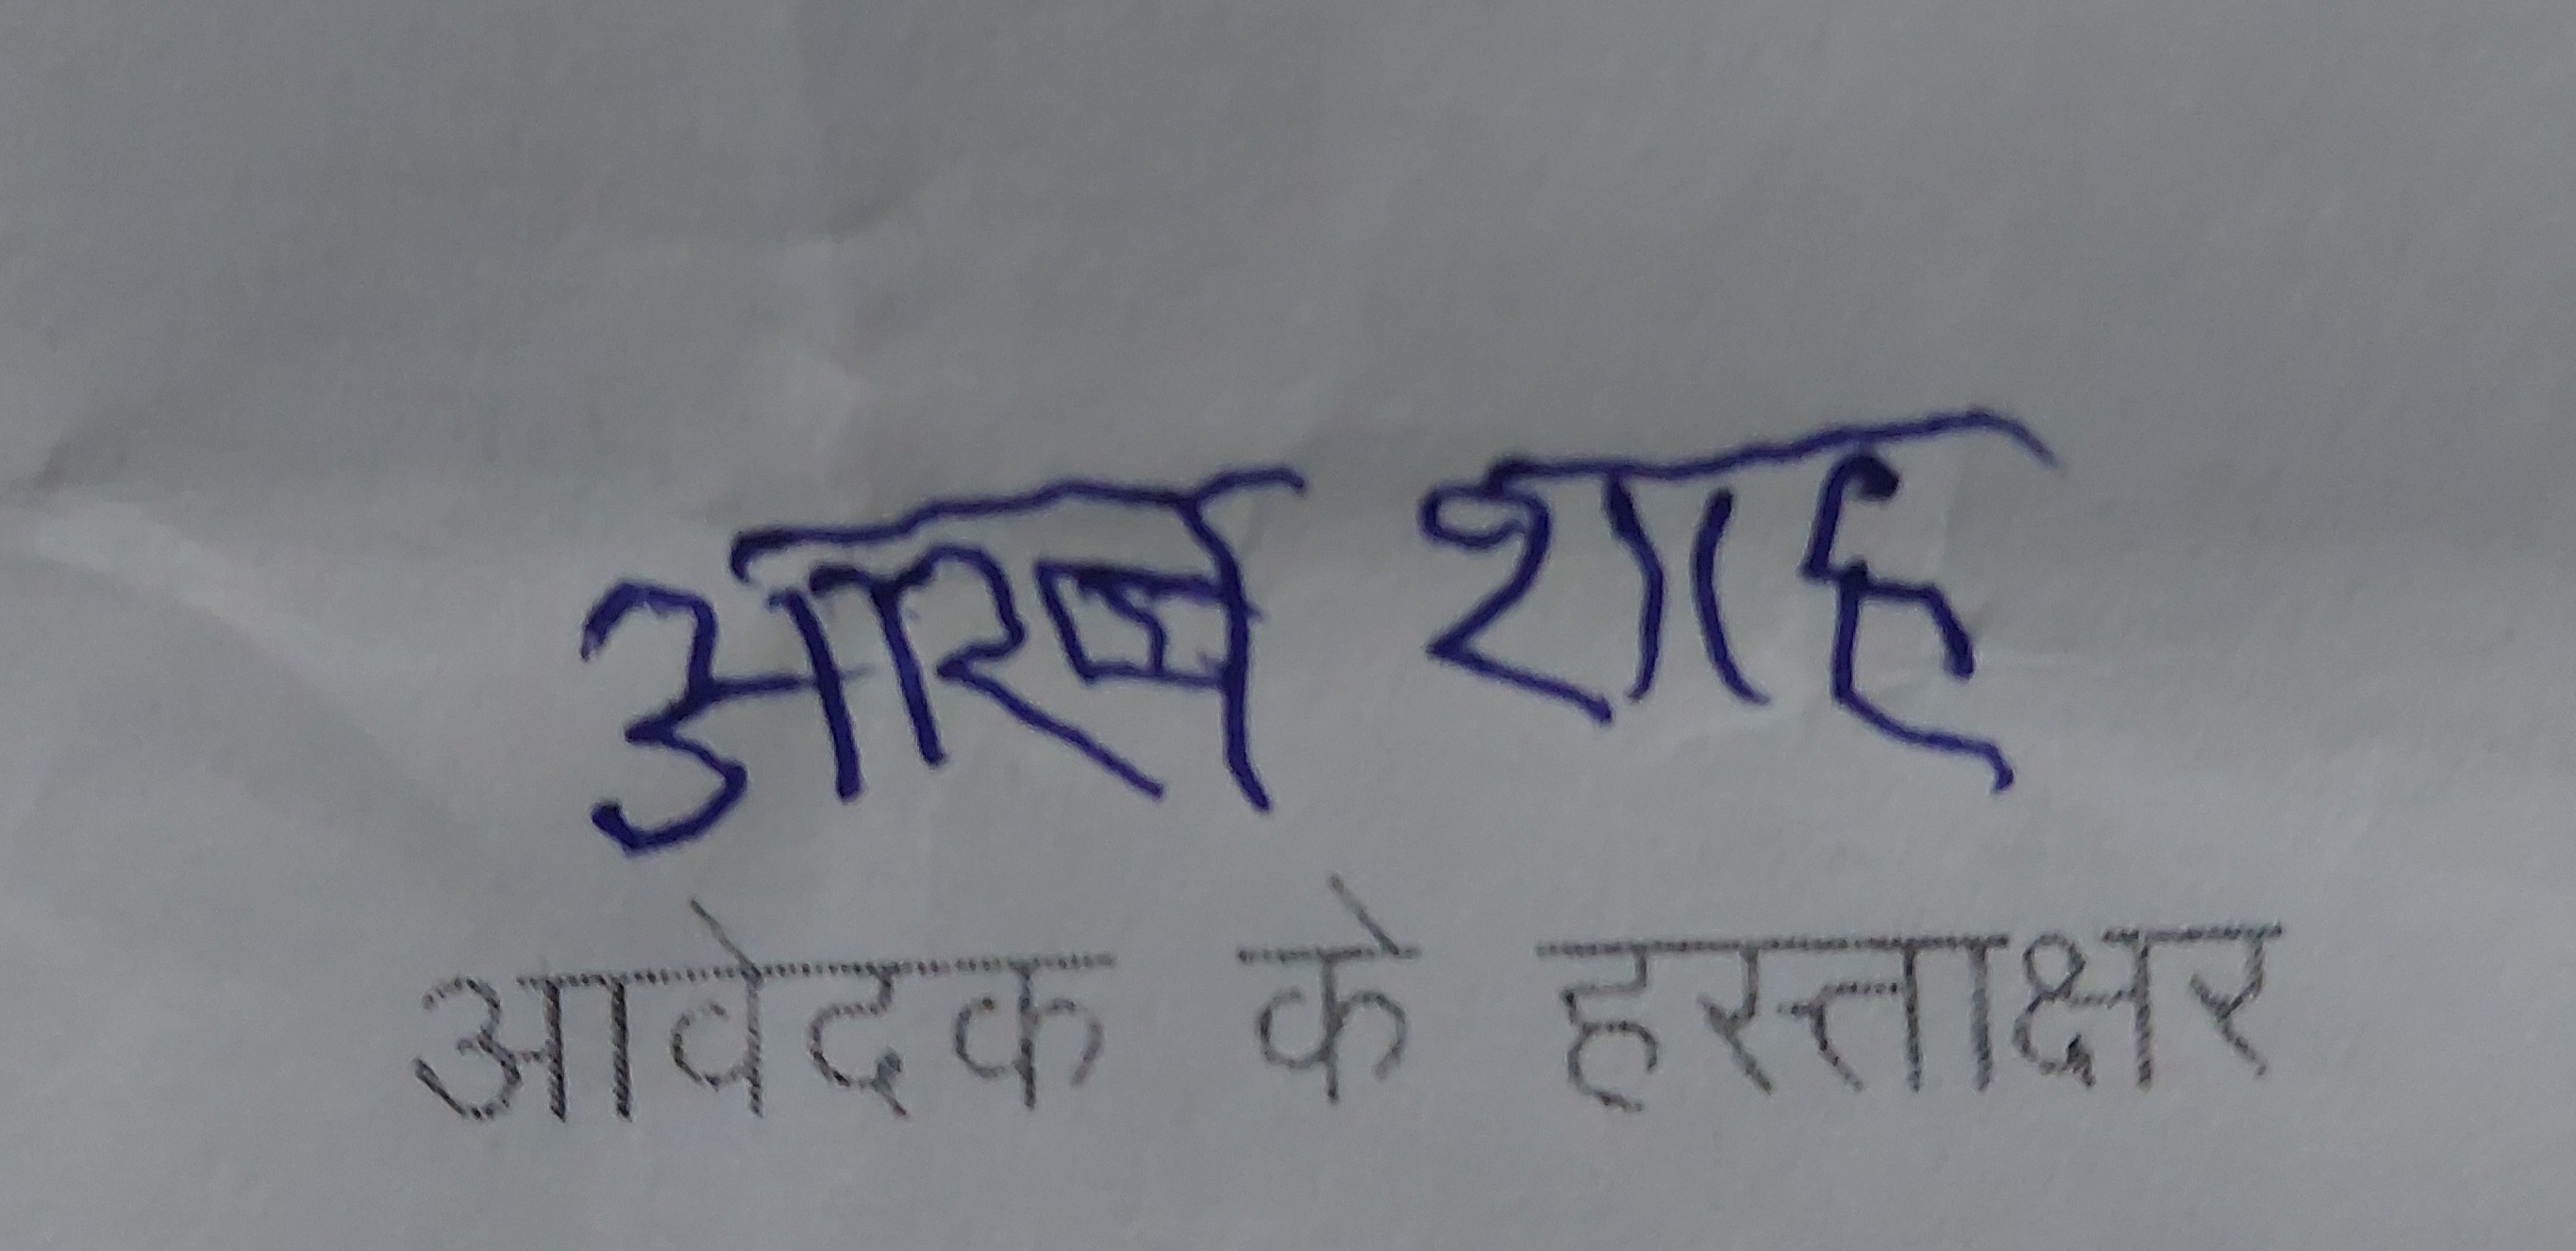 आरव शाह
आवेदक के हस्ताक्षर